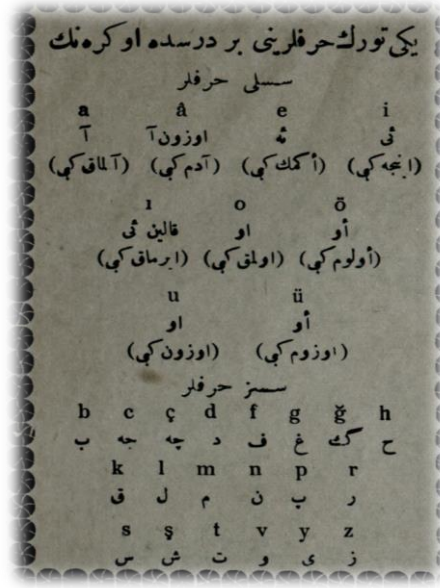 یکی تورك حرفلرینی بر درسده اوکره‌نك
سسلی حرفلر
a â e i
آ اوزون آ ئه ئی
(آلماق کبی) (آدم کبی) (أکمك کبی) (اینجه کبی)
ı o ö
قالین ئی او أو
(ایرماق کبی) (اولمق کبی) (أولوم کبی)
u ü
او أو
(اوزون کبی) (اوزوم کبی)
سسز حرفلر
b c ç d f g ğ h
ب جه چه د ف غ گ ح
k l m n p r
ق ل م ن پ ر
s ş t v y z
س ش ت و ی ز